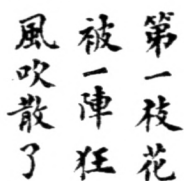 第一枝花
被一陣狂
風吹散了